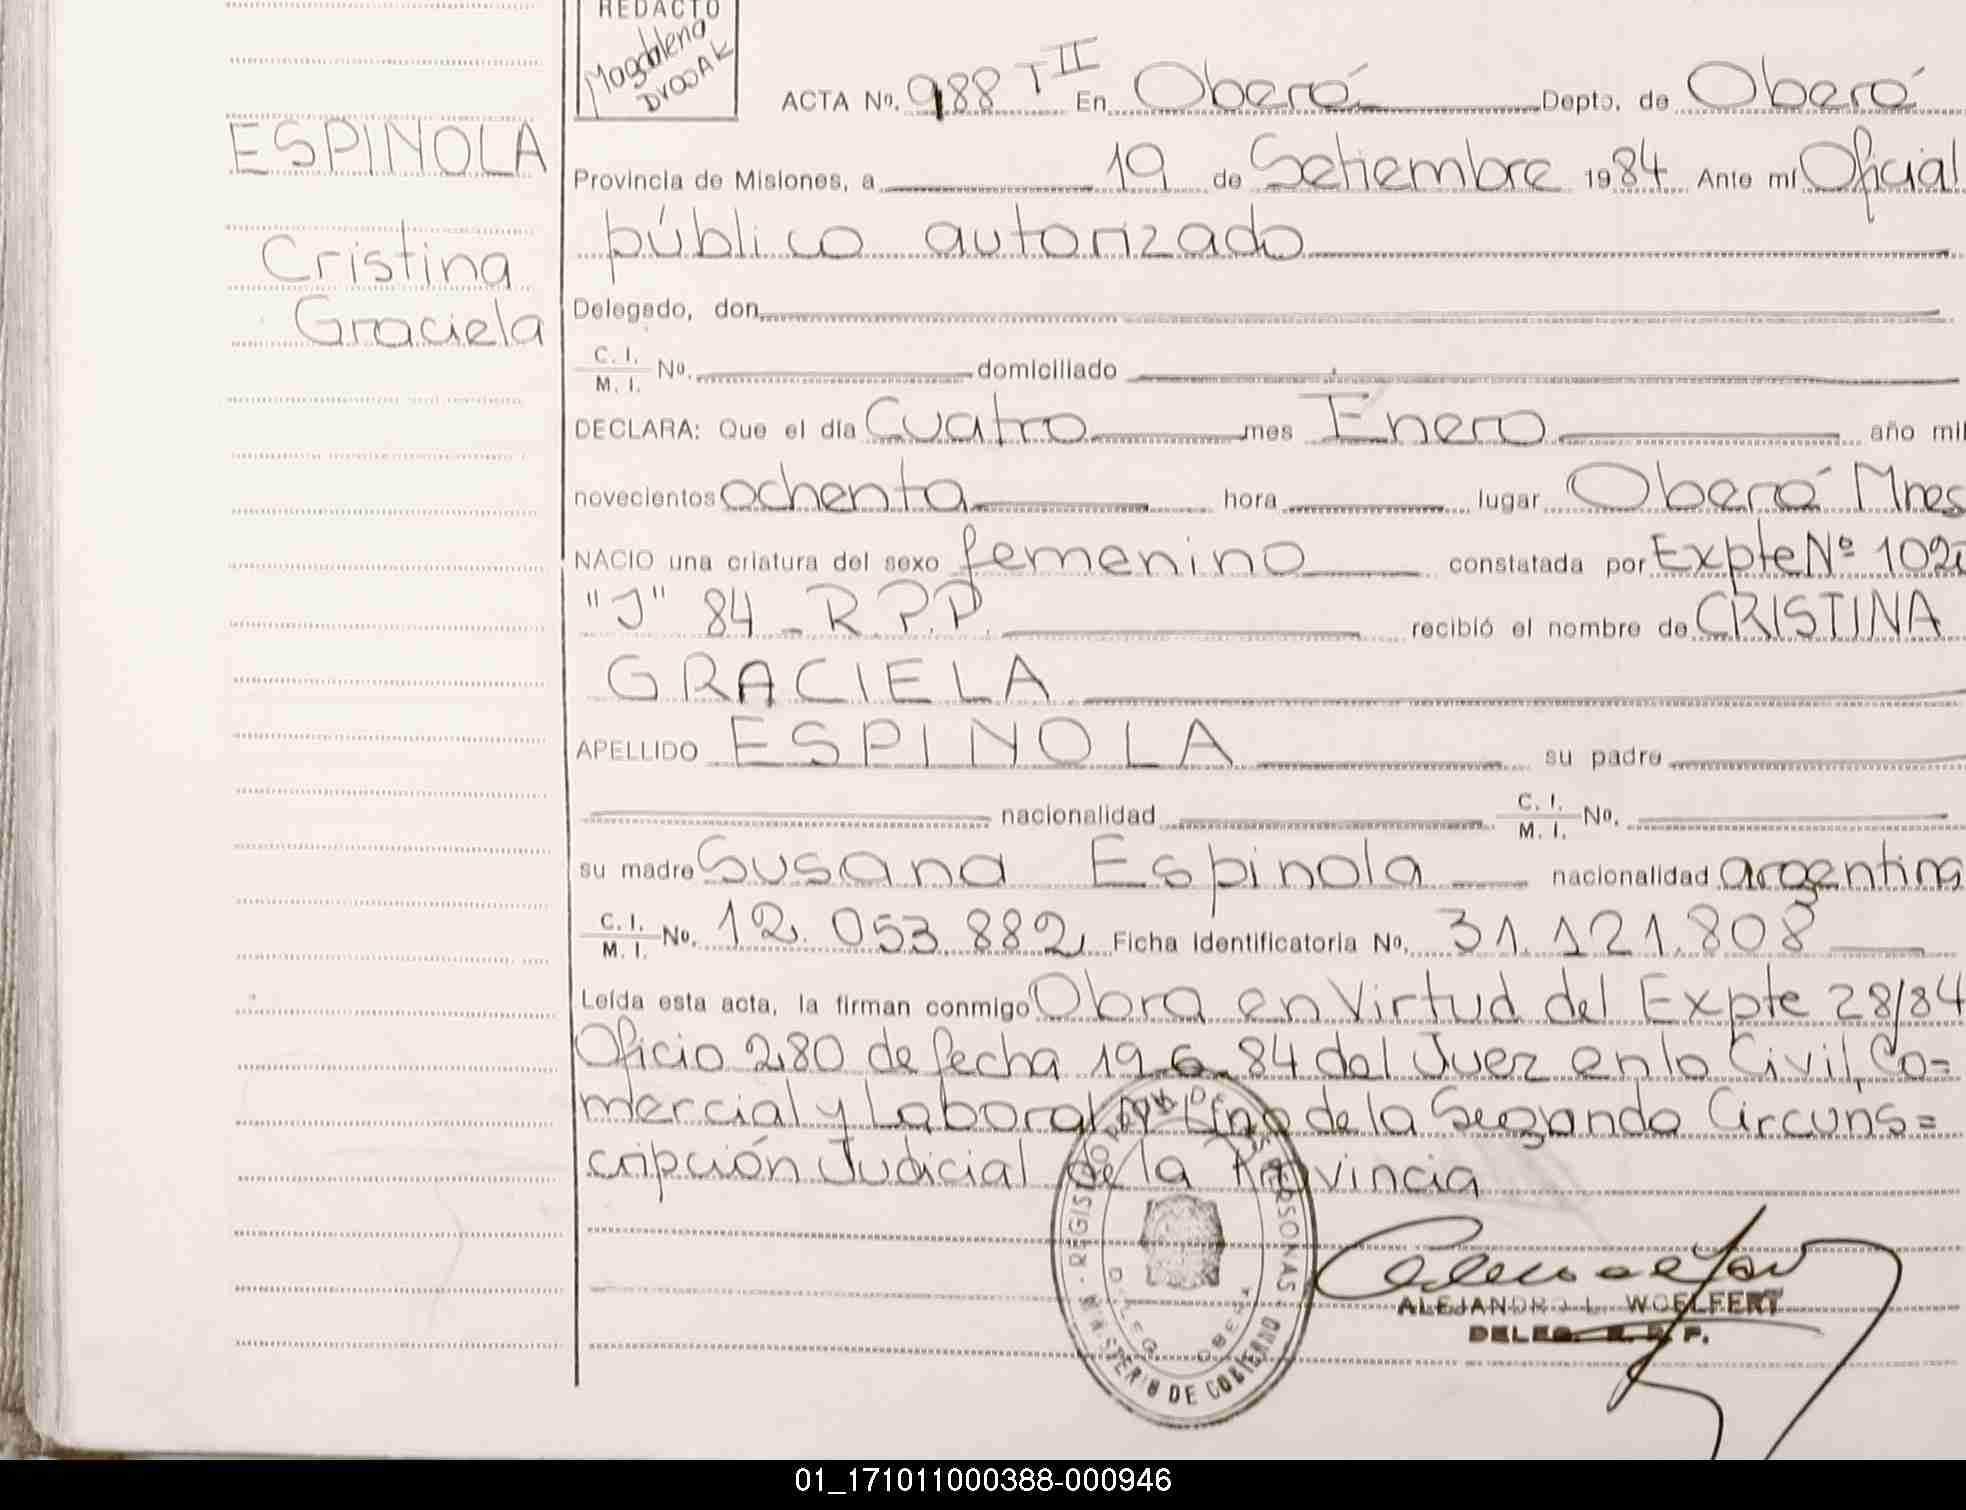 REDACTO
Magdalena
ACTA Nº. 988 T II En Oberá Depto. de Oberá
ESPINOLA
Provincia de Misiones, a 19 de Setiembre 1984 Ante mí Oficial
público autorizado
Cristina
Graciela
Delegado, don
C. I.
M. I. Nº. domiciliado
DECLARA: Que el día Cuatro mes Enero año mil
novecientos ochenta hora lugar Oberá Mnes
NACIO una criatura del sexo femenino constatada por Expte Nº 102
"J" 84 - R.P.P. recibió el nombre de CRISTINA
GRACIELA
APELLIDO ESPINOLA su padre
nacionalidad C. I. M. I. Nº.
su madre Susana Espinola nacionalidad argentina
C. I.
M. I. Nº. 12.053.882 Ficha Identificatoria Nº. 31.121.808
Leída esta acta, la firman conmigo Obra en Virtud del Expte 28/84
Oficio 280 de fecha 19.6.84 del Juez en lo Civil, Co=
mercial y Laboral de la Segunda Circuns=
cripción Judicial de la Provincia
MINISTERIO DE GOBIERNO
ALEJANDRO L. WOELFERT
DELEG. R. P. P.
01_171011000388-000946